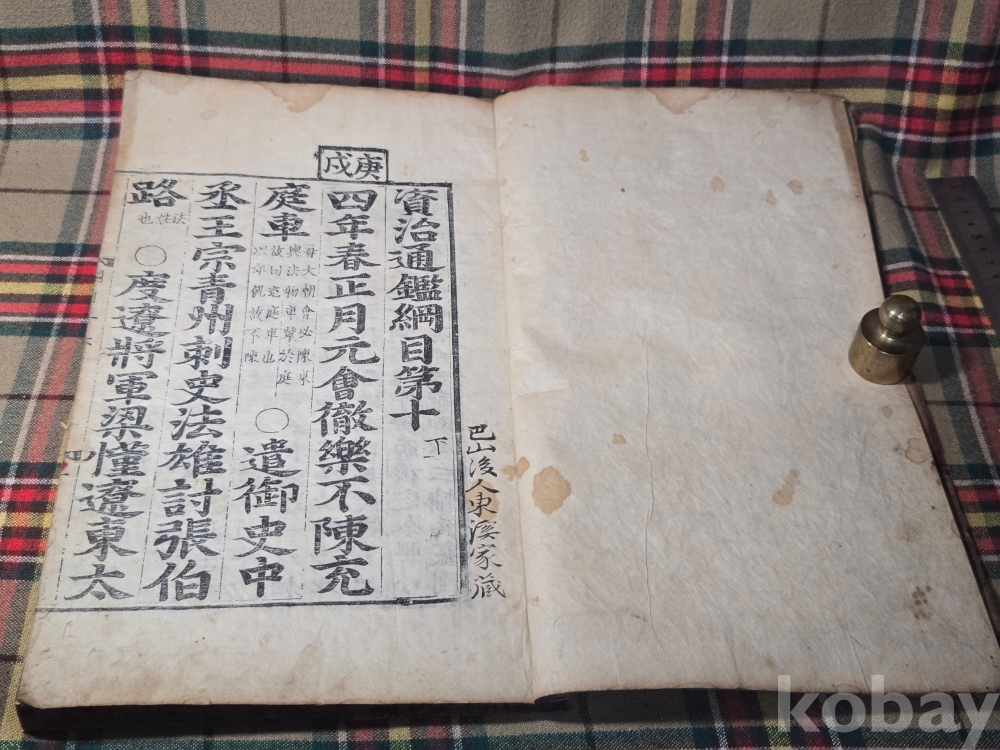 巴山後人東溪家藏
資治通鑑綱目第十
下
庚戌
四年春正月元會徹樂不陳充
庭車
每大朝會必陳乘
輿法物車輦於庭
故曰充庭車也
以年饑故不陳
○遣御史中
丞王宗青州刺史法雄討張伯
路
法姓也
○度遼將軍梁慬遼東太
kobay